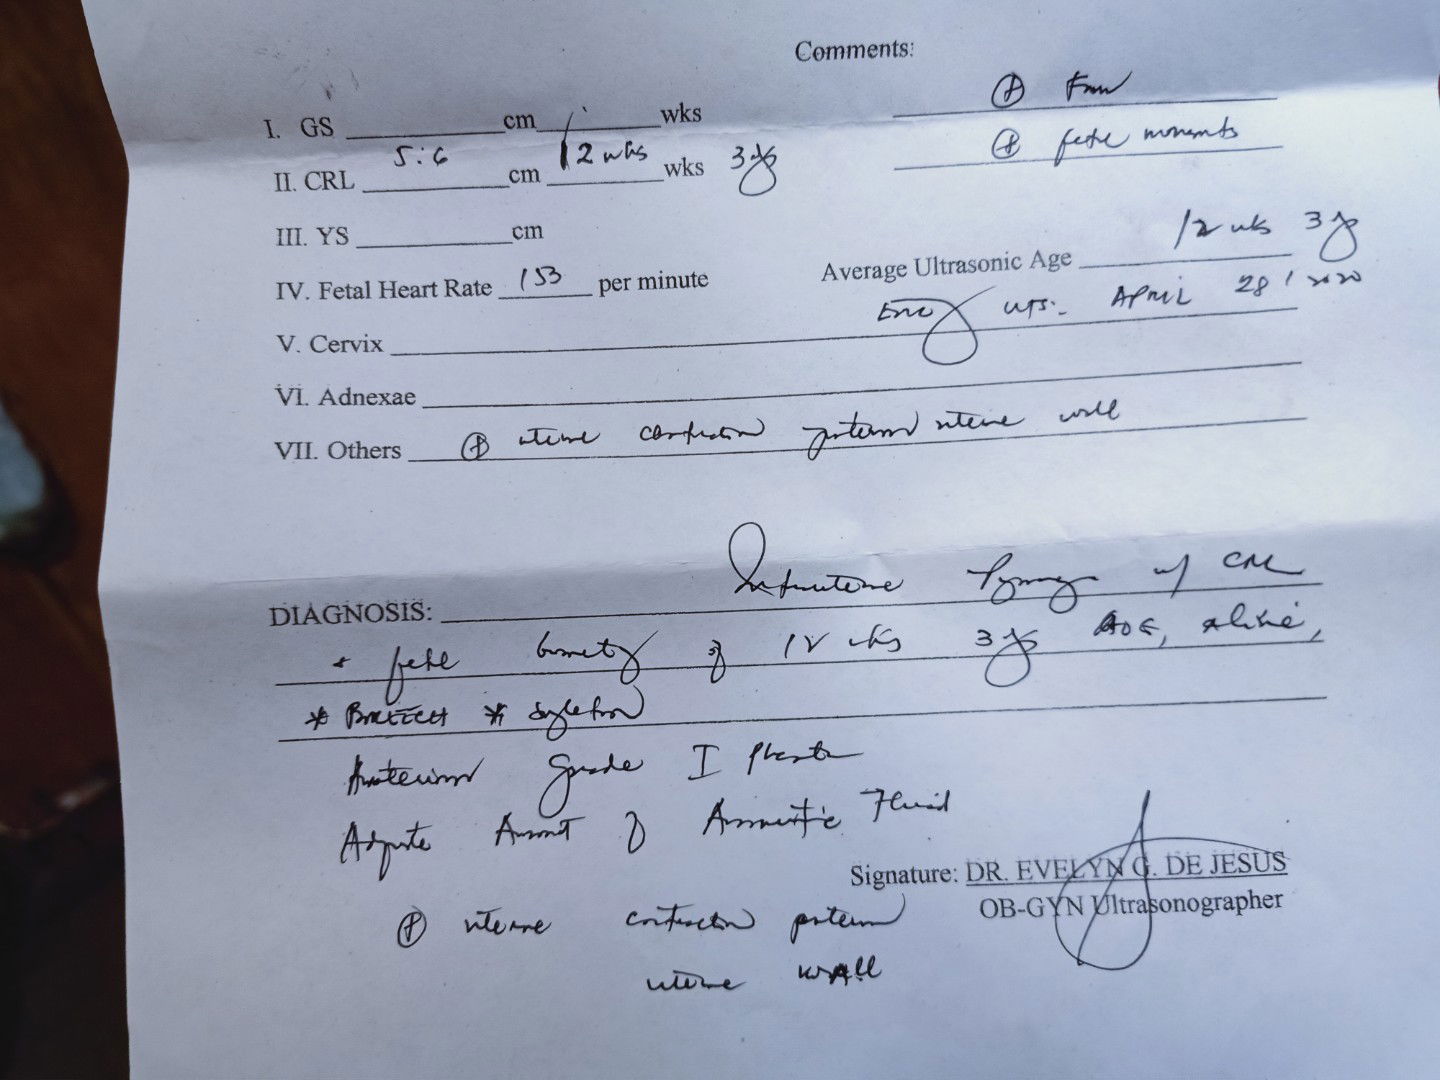 Comments:
⊕ FHR
I. GS ____ cm ____ wks
⊕ fetal movements
II. CRL 5.6 cm 12 wks wks 3
III. YS ____ cm
Average Ultrasonic Age 12 wks 3
IV. Fetal Heart Rate 153 per minute
UTS: APRIL 28, 2020
V. Cervix
VI. Adnexae
VII. Others ⊕ uterine contraction posterior uterine wall
DIAGNOSIS: Intrauterine Pregnancy w/ CRL
+ fetal biometry of 12 wks 3 AOG, alive,
* BREECH * singleton
Anterior Grade I Placenta
Adequate Amount of Amniotic Fluid
Signature: DR. EVELYN G. DE JESUS
OB-GYN Ultrasonographer
⊕ uterine contraction posterior
uterine WALL